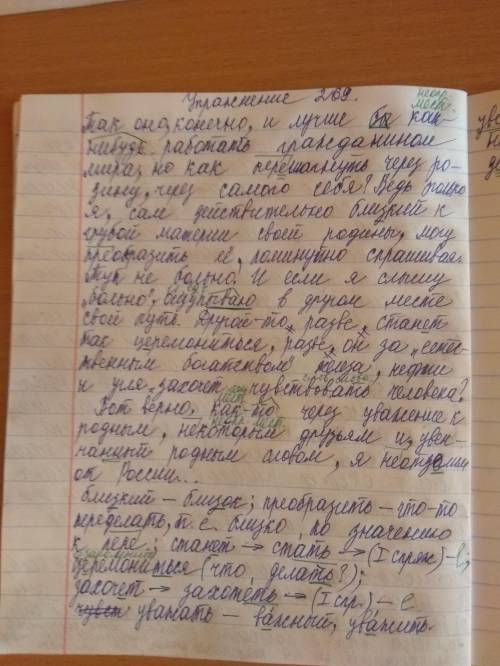 Упражнение 269.
неопр.
мест.
Так оно, конечно, и лучше бы как
нибудь работать гражданином
мира, но как перешагнуть через ро-
дину, через самого себя? Ведь только
я, сам действительно близкий к
грубой материи своей родины, могу
преобразить её, поминутно спрашивая:
Тут не больно? И если я слышу
"больно", ощупываю в другом месте
свой путь. Другой-то, разве, станет
так церемониться, разве, он за "естест-
твенным богатством" железа, нефти
и угля захочет чувствовать человека?
Вот верно, как-то через уважение к
родным, некоторым друзьям и, увен-
чанный родным словом, я неотделим
от России...
близкий – близок; преобразить – что-то
переделать, т.е. близко по значению
к пере; станет → стать → (I спряж) – е;
церемониться (что делать?);
захочет → захотеть → (I спр.) – е
уважать – важный, уважить.